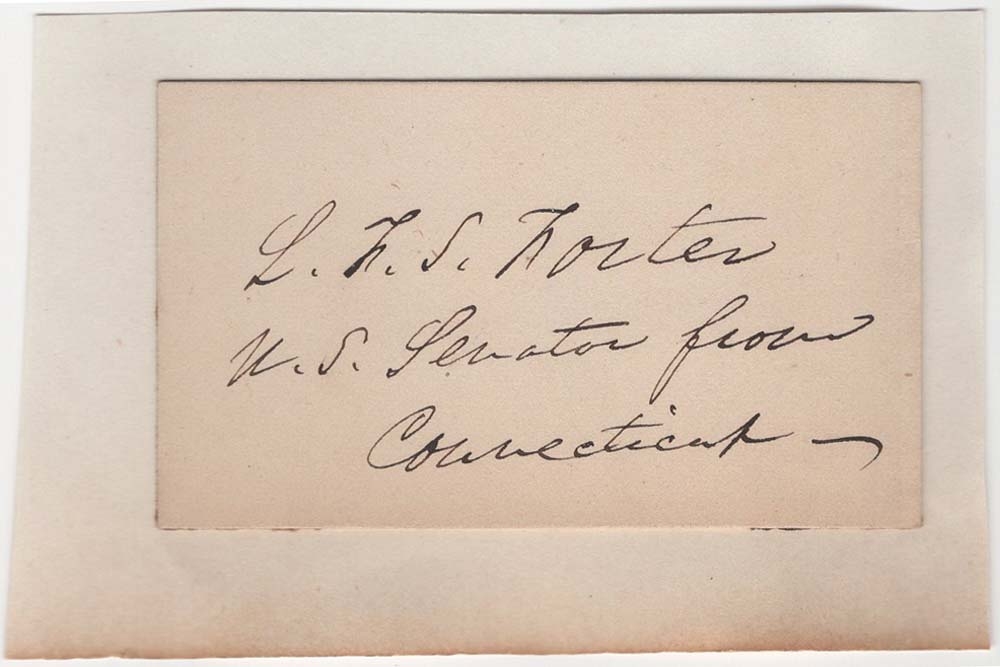 L. F. S. Foster
U. S. Senator from
Connecticut —